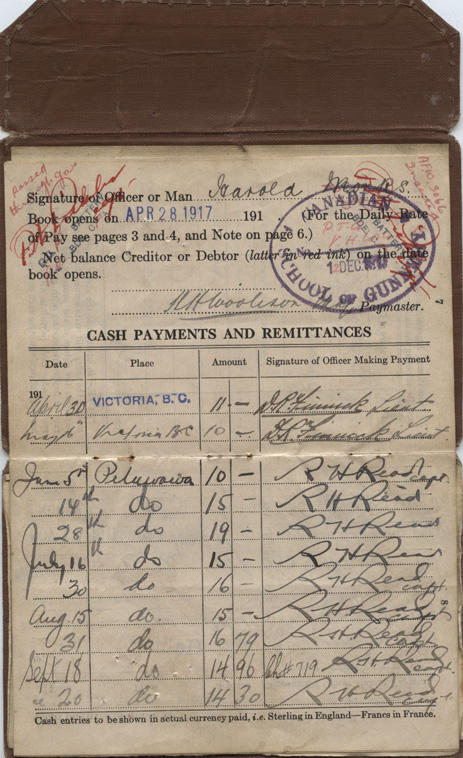 Signature of Officer or Man Harold Monks.
Book opens on APR 28 1917 191 (For the Daily Rate
of Pay see pages 3 and 4, and Note on page 6.)
Net balance Creditor or Debtor (latter in red ink) on the date
book opens.
CANADIAN
SCHOOL OF GUNNERY
1 DEC
Paymaster.
7
CASH PAYMENTS AND REMITTANCES
Date Place Amount Signature of Officer Making Payment
191
April 30 VICTORIA, B.C. 11 — Lieut
May 16 Victoria BC 10 — Lieut
June 5th Petawawa 10 — R H Read Capt
14th do 15 — R H Read
28th do 19 — R H Read
July 16th do 15 — R H Read
30 do 16 — R H Read Capt
8
Aug. 15 do. 15 — R H Read Capt
31 do 16 79 R H Read Capt
Sept 18 do 14 96 Ch# 719 R H Read Capt.
" 20 do 14 30 R H Read Capt
Cash entries to be shown in actual currency paid, i.e. Sterling in England—Francs in France.